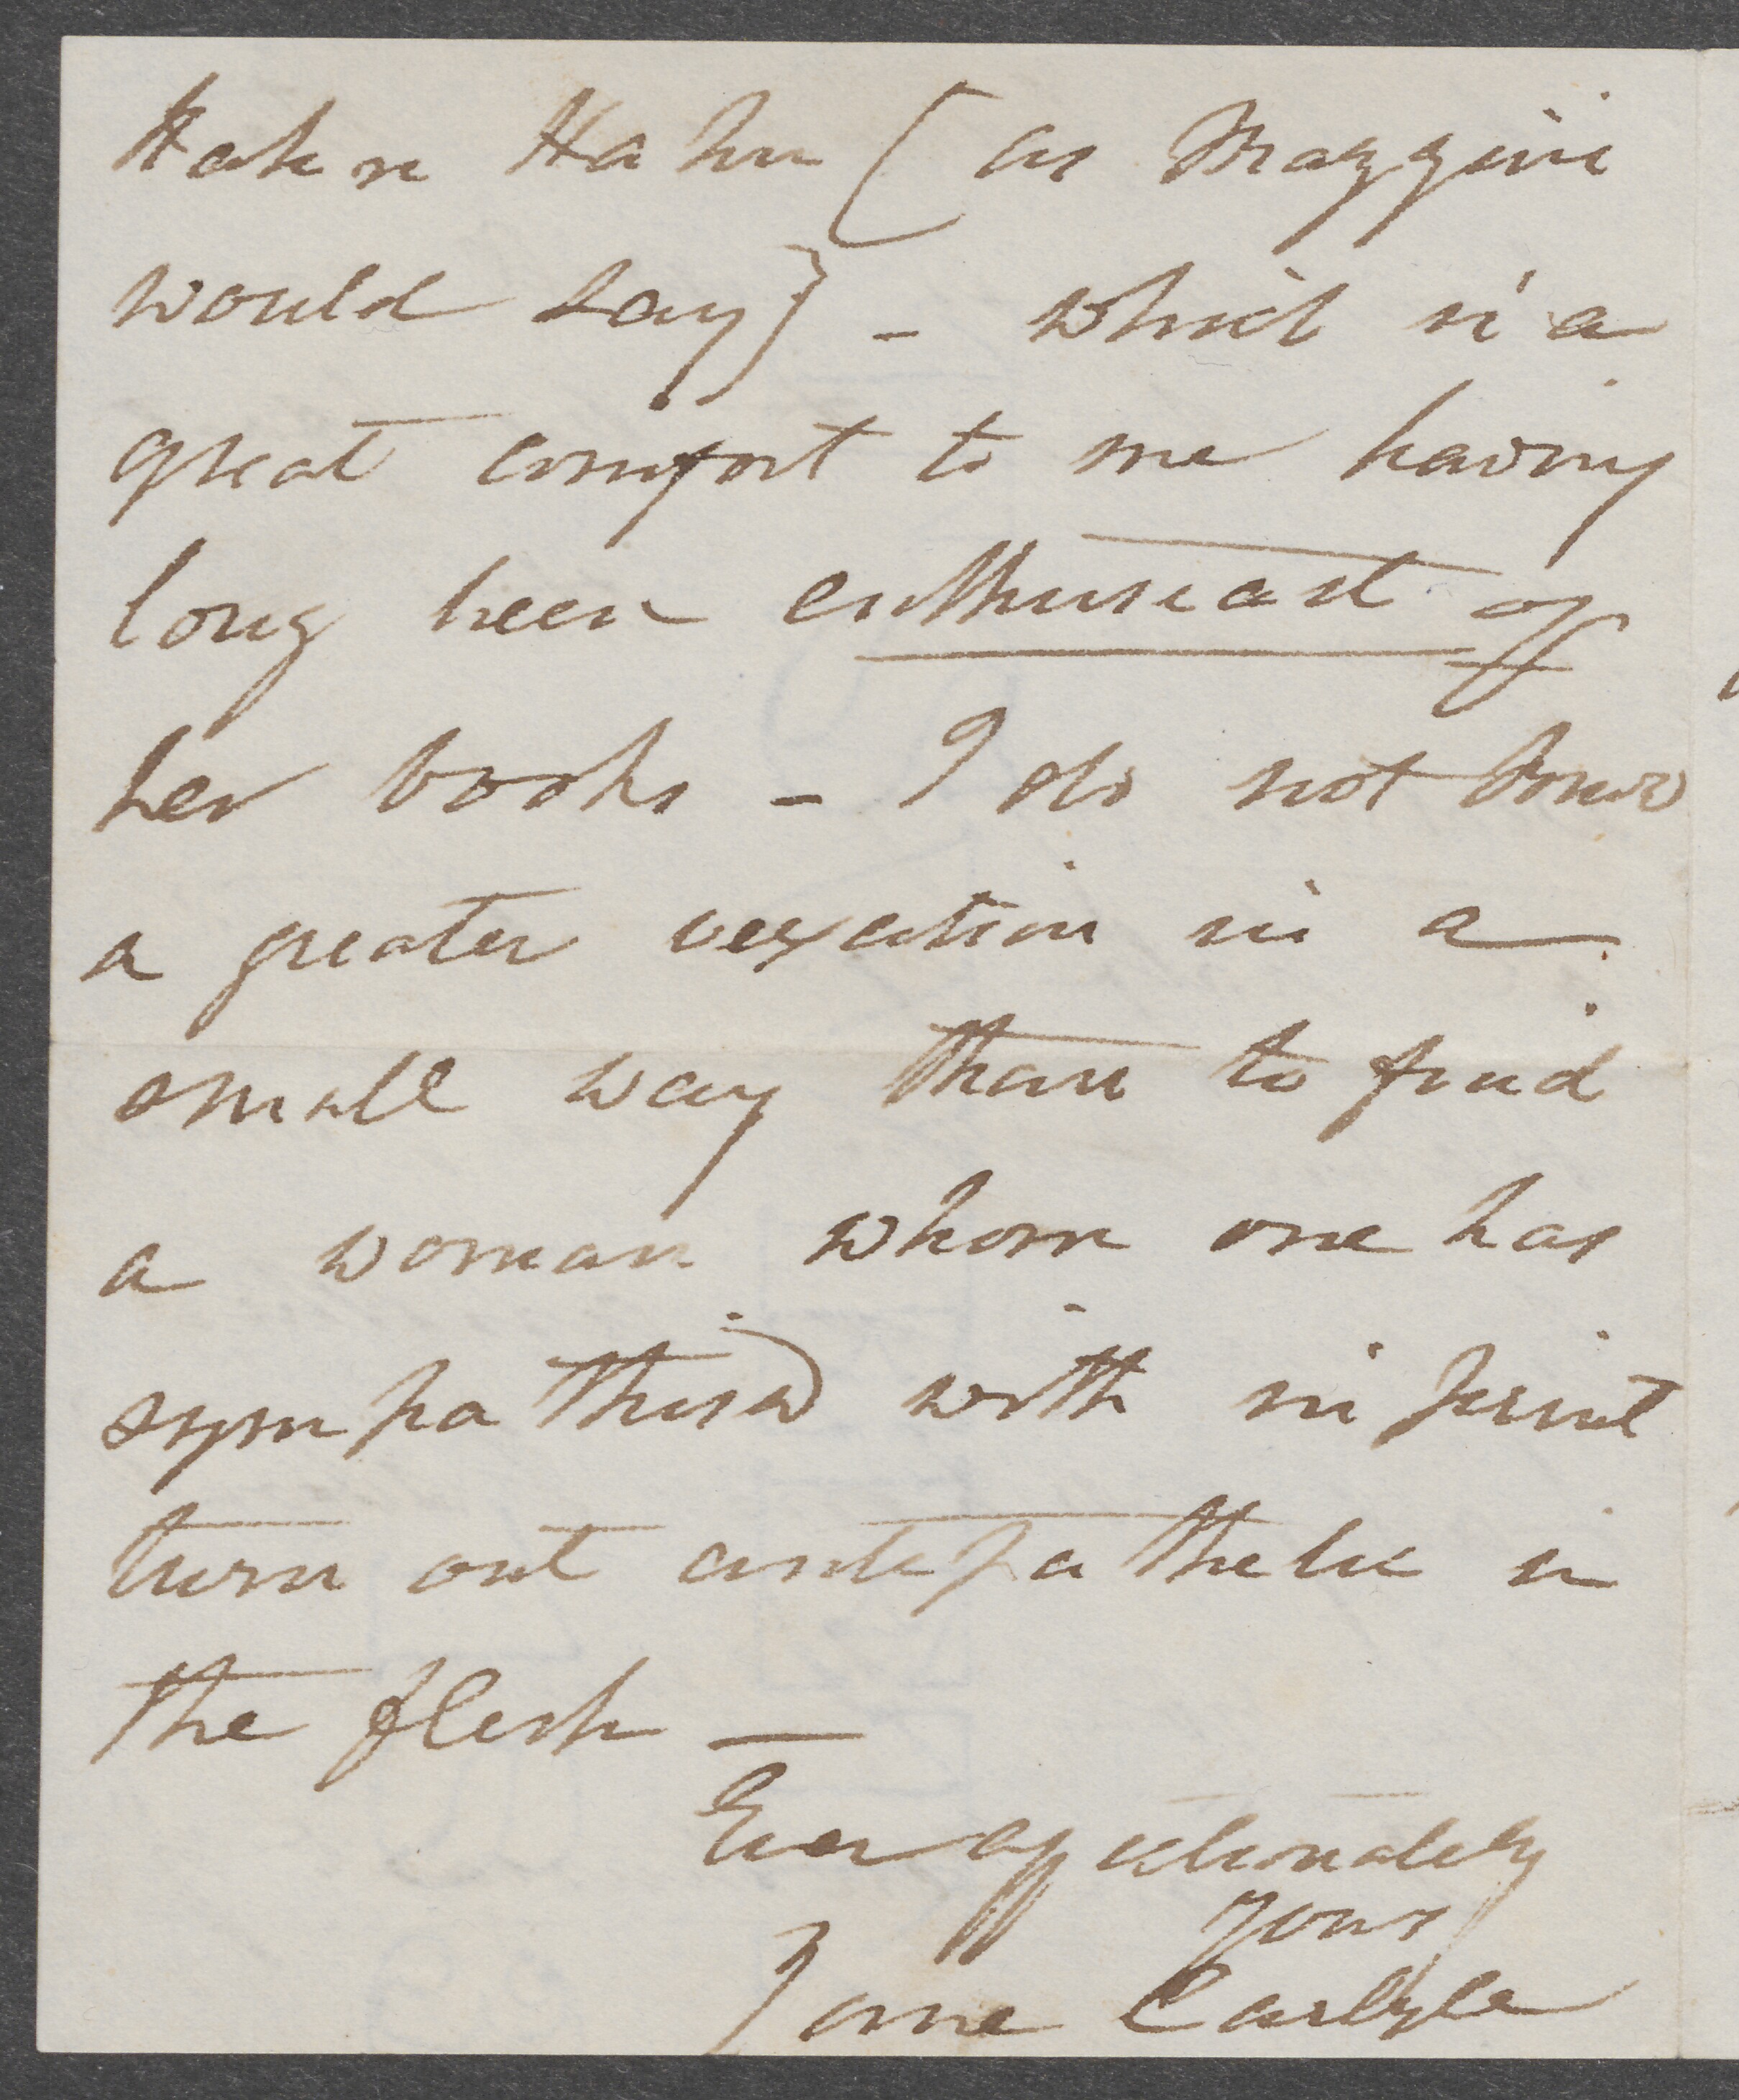 Hahn Hahn (as Mazzini
would say) – which is a
great comfort to me having
long been enthusiast of
her books – I do not know
a greater vexation in a
small way than to find
a woman whom one has
sympathised with in print
turn out antepathetic in
the flesh —
Ever affectionately
yours
Jane Carlyle